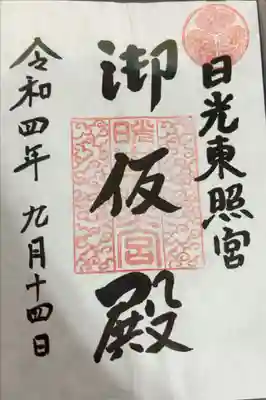 日光東照宮
御仮殿
令和四年 九月十四日